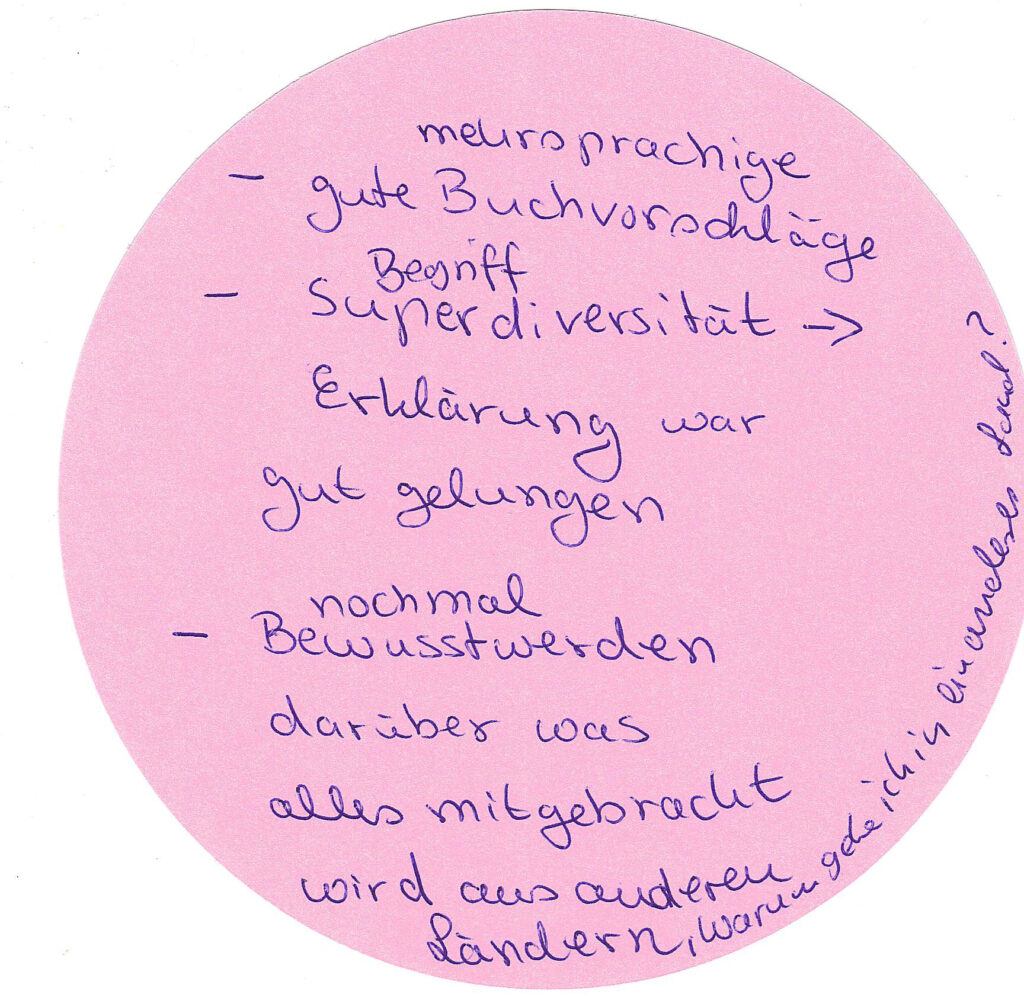 mehrsprachige
- gute Buchvorschläge
Begriff
- Superdiversität →
Erklärung war
gut gelungen
nochmal
- Bewusstwerden
darüber was
alles mitgebracht
wird aus anderen
Ländern, warum gehe ich in ein anderes Land?